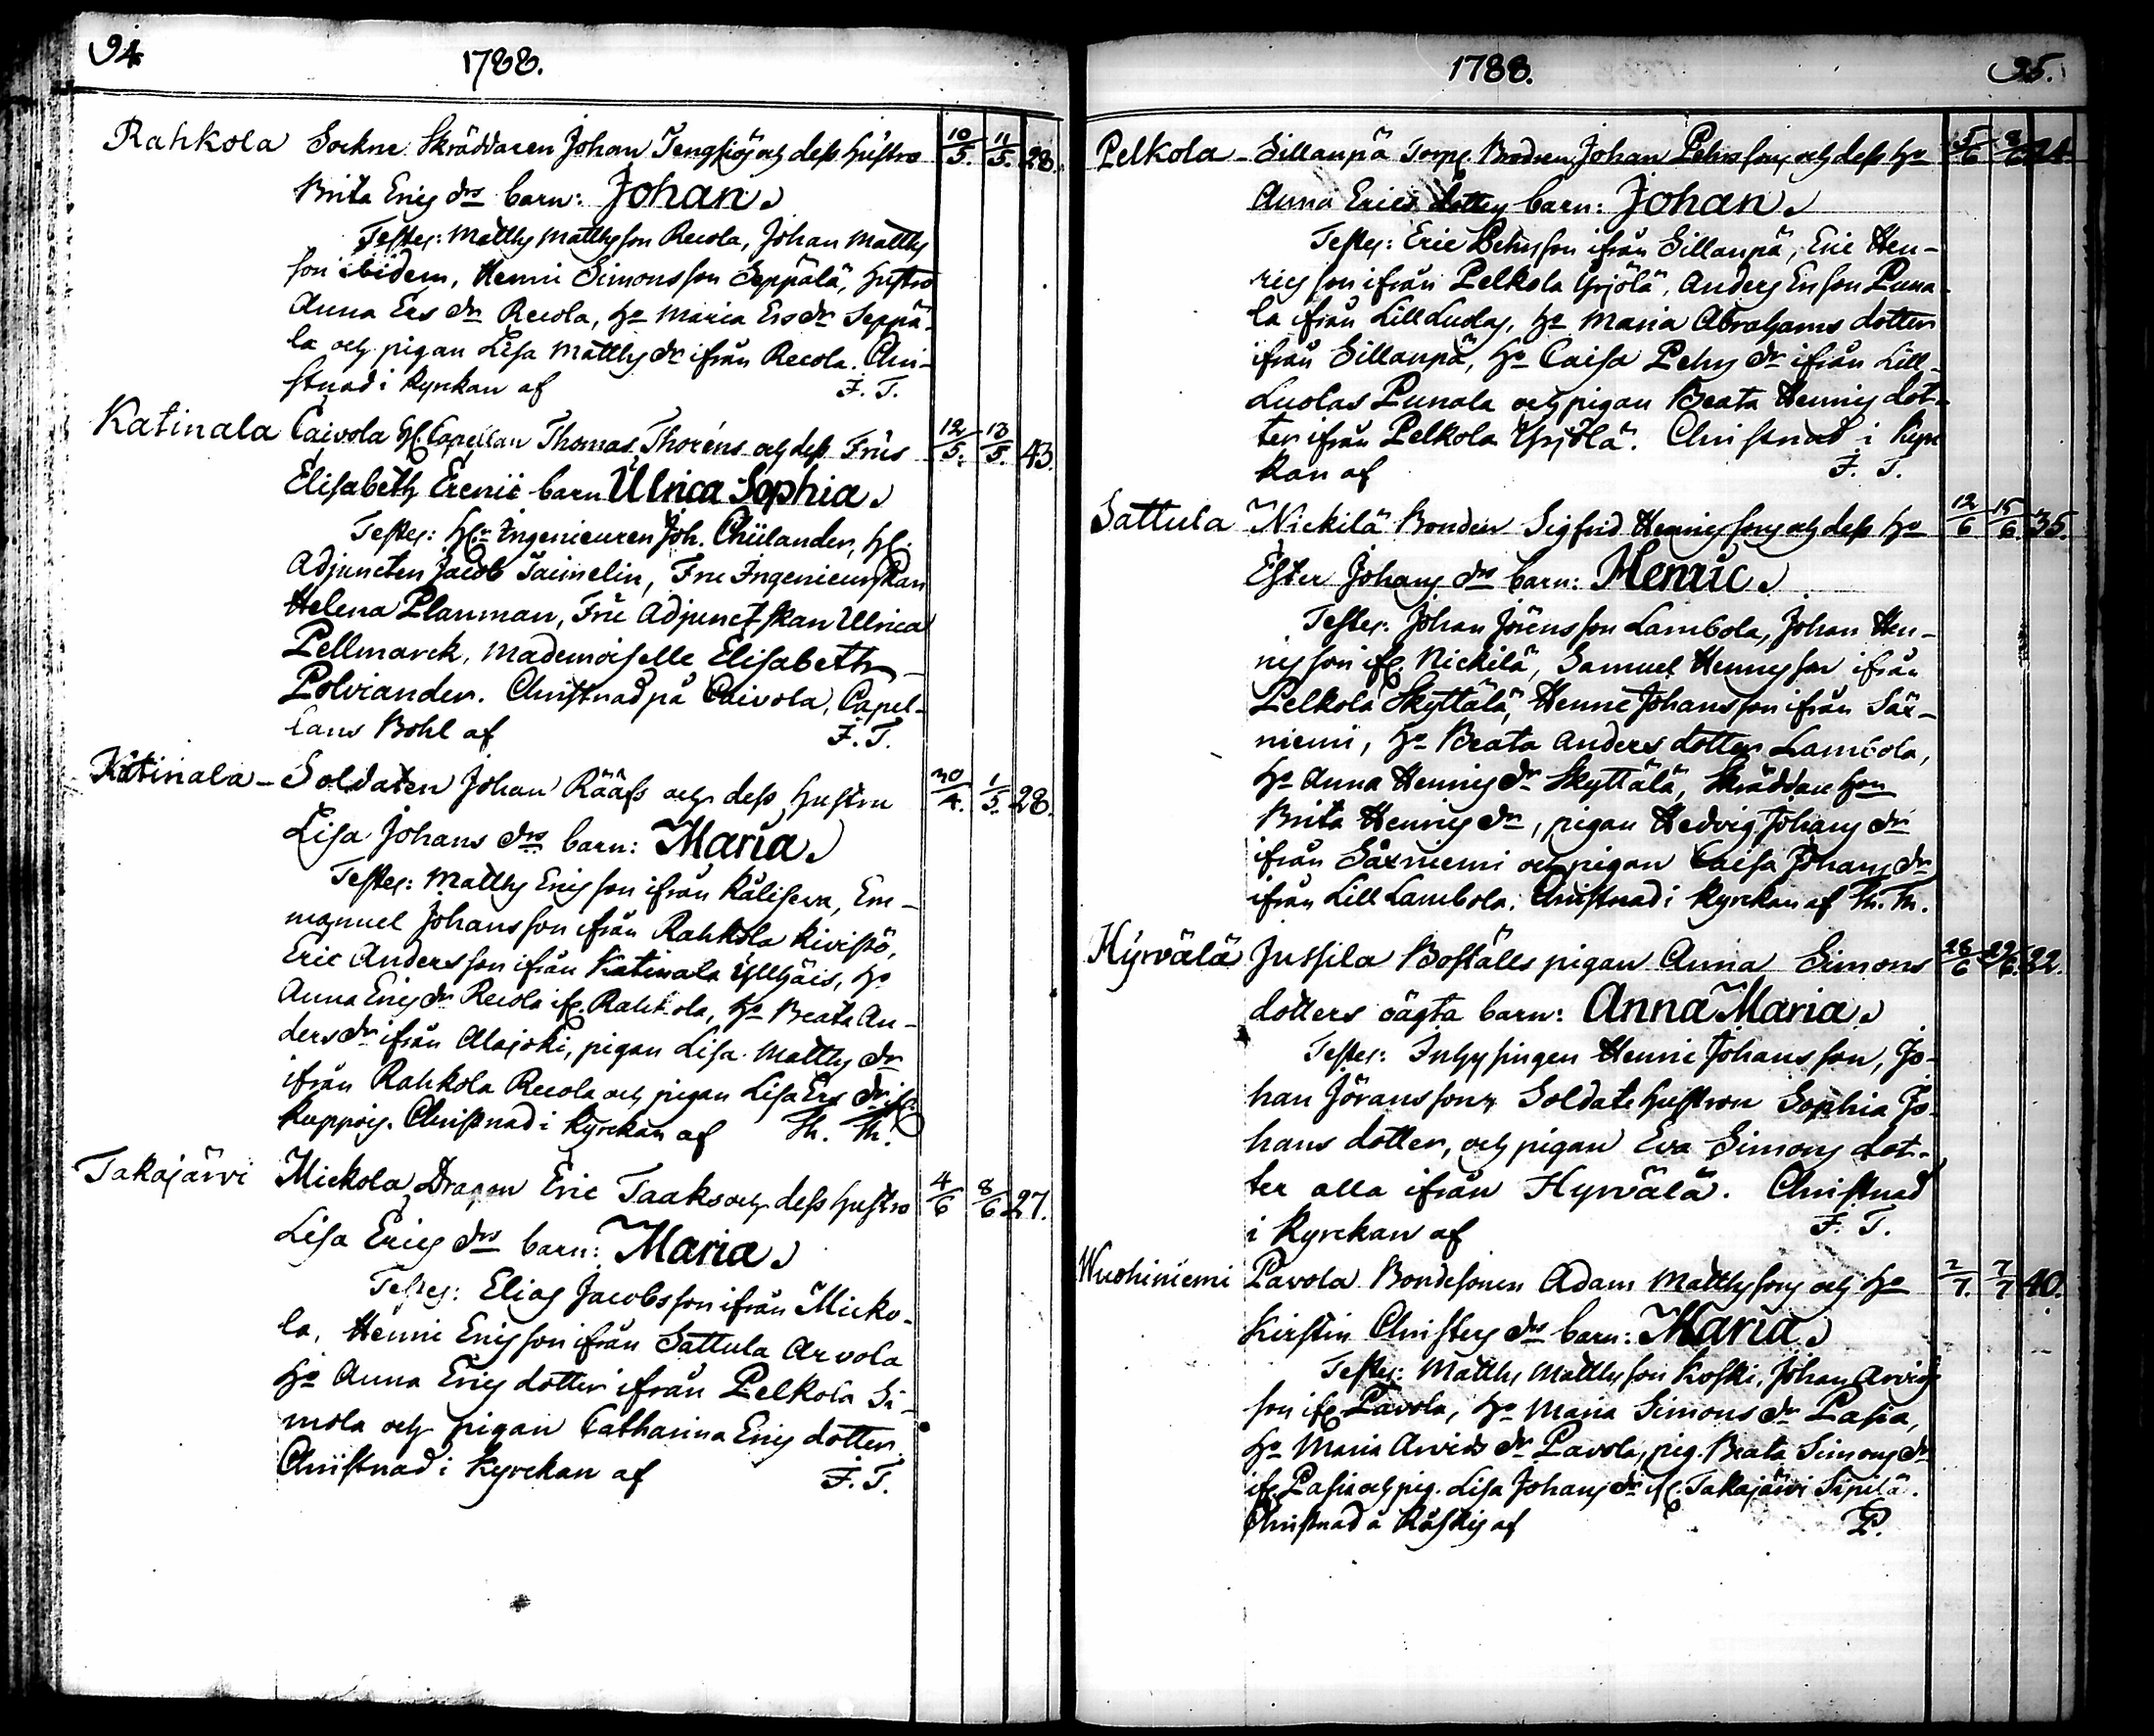 94. 1788.
Rahkola Sockne Skräddaren Johan Tengsiös och dess hustro 10/5. 11/5. 28.
Brita Erics drs barn: Johan.
Testes: Matths Matthsson Recola, Johan Matths
son ibidem, Henric Simonsson Seppälä, hustro
Anna Ers dr Recola, ho Maria Ers dr Seppä-
lä och pigan Lisa Matths dr ifrån Recola. Chri-
stnad i kyrkan af F. T.
Katinala Caivola Hr Capellan Thomas Thoréns och dess Frus 12/5. 13/5. 43.
Elisabeth Erenii barn Ulrica Sophia.
Testes: Hr Ingenieuren Joh. Chiilander, Hr
Adjuncten Jacob Taimelin, Fru Ingenieurskan
Helena Planman, Fru Adjunctskan Ulrica
Pellmarck, Mademoiselle Elisabeth
Polviander. Christnad på Caivola, Capel-
lans Bohl af F. T.
Katinala - Soldaten Johan Rääfs och dess hustru 30/4. 1/5. 28.
Lisa Johans drs barn: Maria.
Testes: Matths Ericsson ifrån Kälisewa, Em-
manuel Johansson ifrån Rahkola Kivistö,
Eric Andersson ifrån Katinala Yllhäis, ho
Anna Erics dr Recola ifr. Rahkola, ho Beata An-
ders dr ifrån Alajoki, pigan Lisa Matths dr
ifrån Rahkola Recola och pigan Lisa Ers dr ifr.
Kappois. Christnad i kyrckan af Th. Th.
Takajärvi Mickola Dragon Eric Taaks och dess hustro 4/6 8/6 27.
Lisa Erics drs barn: Maria.
Testes: Elias Jacobsson ifrån Micko-
la, Henric Ericsson ifrån Sattula Arvola
ho Anna Erics dotter ifrån Pelkola Si-
mola och pigan Catharina Erics dotter.
Christnad i kyrckan af F. T.
1788. 95.
Pelkola - Sillanpä Torp. Brodren Johan Pehrssons och dess ho 5/6 8/6
Anna Erics dotters barn: Johan.
Testes: Eric Pehrsson ifrån Sillanpä, Eric Hen-
ricsson ifrån Pelkola Yrjölä, Anders Ersson Puna-
la ifrån Lill Luolas, ho Maria Abrahams dotter
ifrån Sillanpä, ho Caisa Pehrs dr ifrån Lill
Luolas Punala och pigan Beata Henrics dot-
ter ifrån Pelkola Yrjölä. Christnad i kyr
kan af F. T.
Sattula Nickilä Bonden Sigfrid Henricssons och dess ho 12/6 15/6. 35.
Ester Johans drs barn: Henric.
Testes: Johan Jöransson Lambola, Johan Hen-
ricsson ifr. Nickilä, Samuel Henricsson ifrån
Pelkola Skyttälä, Henric Johansson ifrån Säx-
niemi, ho Beata Anders dotter Lambola,
ho Anna Henrics dr Skyttälä, Skräddare hon
Brita Henrics dr, pigan Hedvig Johans dr
ifrån Säxniemi och pigan Caisa Johans dr
ifrån Lill Lambola. Christnad i kyrckan af Th. Th.
Hyrvälä Jussila Boställs pigan Anna Simons 28/6 29/6. 22.
dotters oägta barn: Anna Maria.
Testes: Inhysingen Henric Johansson, Jo-
han Jöransson, Soldatehustron Sophia Jo-
hans dotter, och pigan Eva Simons dot-
ter alla ifrån Hyrvälä. Christnad
i kyrckan af F. T.
Wuohiniemi Pavola Bondesonen Adam Matthssons och ho 2/7. 7/7 40.
Kirstin Christers drs barn: Maria.
Testes: Matths Matthsson Koski, Johan Arvids
son ifr. Pavola, ho Maria Simons dr Pasia,
ho Maria Arvids dr Pavola, pig. Beata Simons dr
ifr. Pasia och pig. Lisa Johans dr ifr. Takajärvi Sipilä.
Christnad å af P.